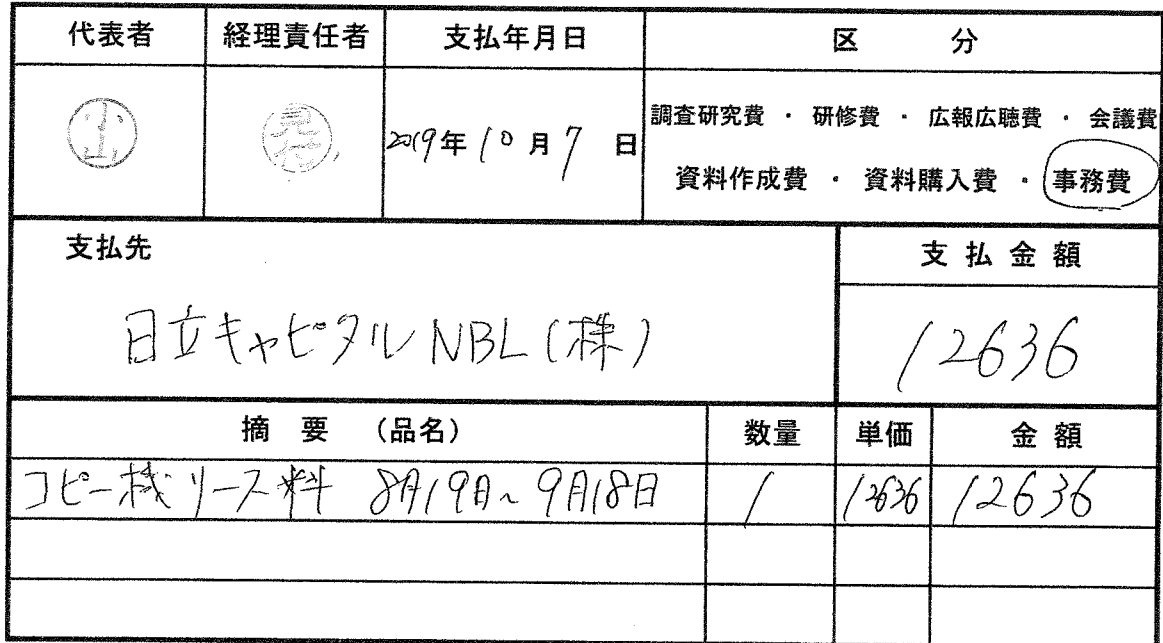 代表者 経理責任者 支払年月日 区 分
小山 2019年10月7日 調査研究費 ・ 研修費 ・ 広報広聴費 ・ 会議費
資料作成費 ・ 資料購入費 ・ 事務費
支払先 支払金額
日立キャピタルNBL(株) 12636
摘 要 (品名) 数量 単価 金額
コピー機リース料 8月19日~9月18日 1 12636 12636